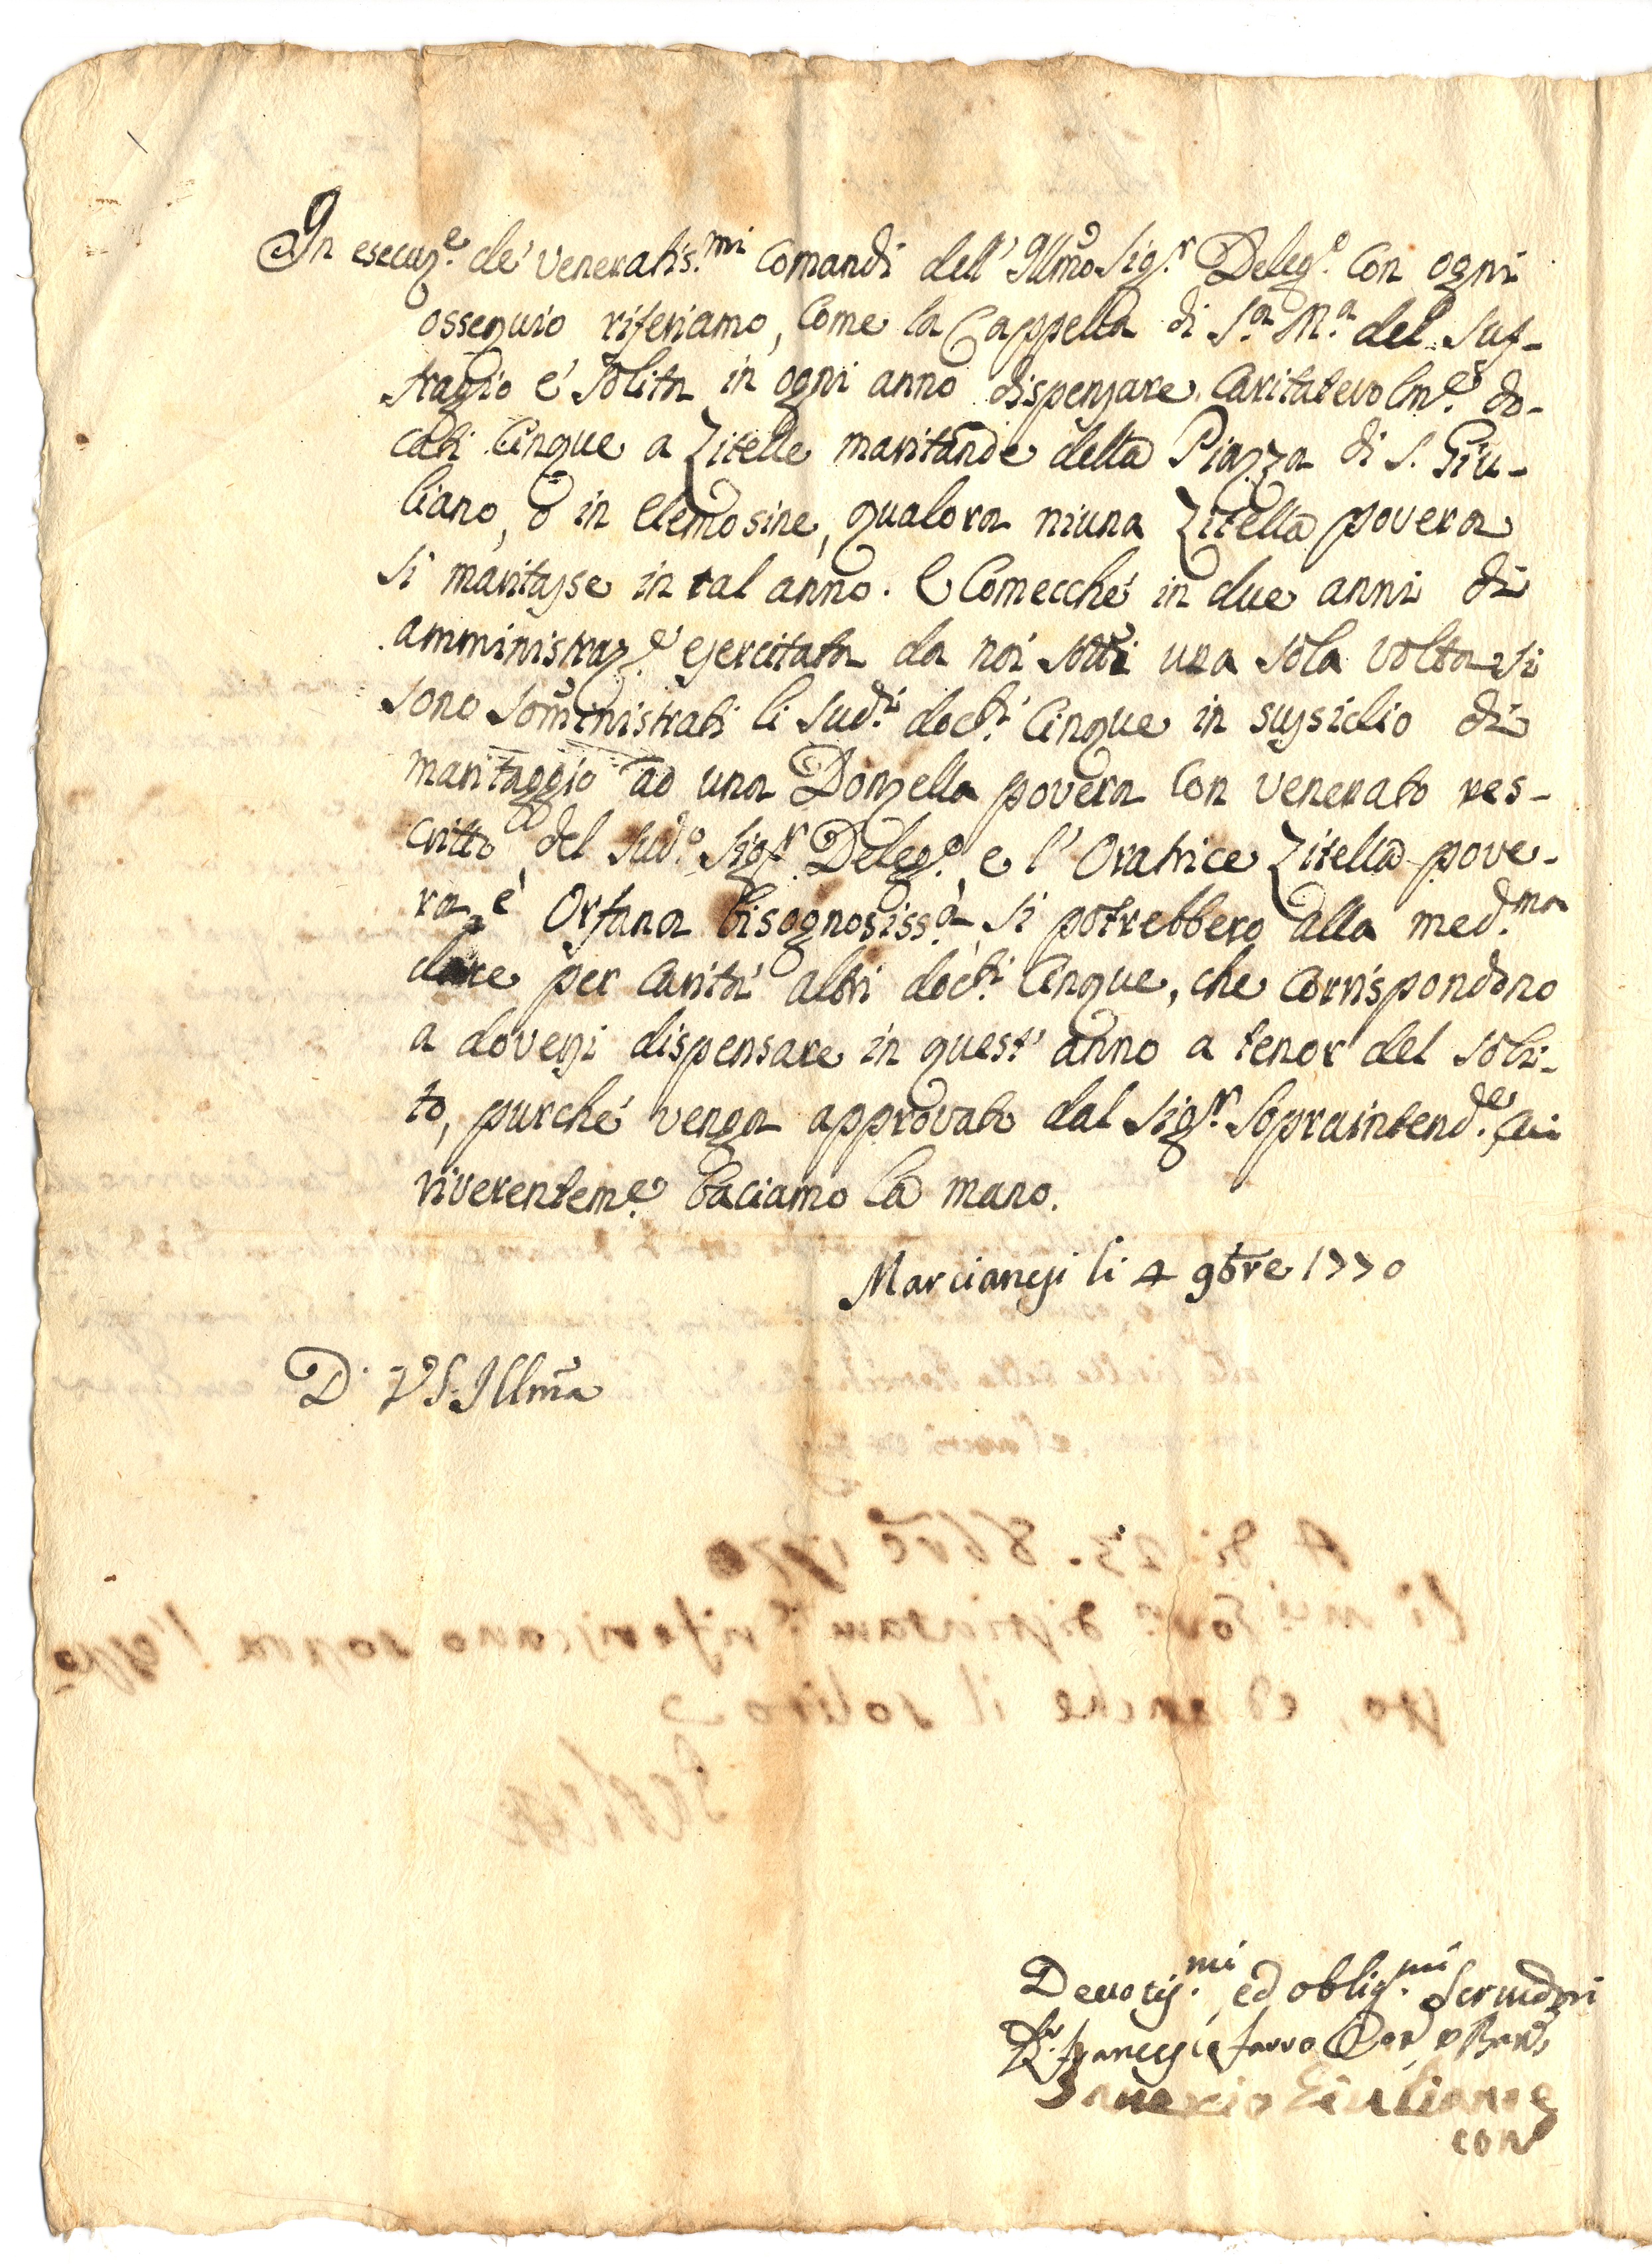 In esecuz.e de' veneratis.mi Comandi dell' Illmo Sig.r Deleg.o con ogni
ossequio riferiamo, Come la Cappella di S.a M.a del Suf-
fragio e' solita in ogni anno dispenzare Caritatevolm.e do-
cati Cinque a Zitelle maritande della Piazza di S. Giu-
liano, o in elemosine, qualora niuna Zitella povera
si maritasse in tal anno. E Comecche' in due anni di
amministraz.e esercitata da noi sotti una sola volta si
sono somministrati li sud.i doc.ti Cinque in sussidio di
maritaggio ad una Donzella povera con venerato res-
critto del sud.o Sig.r Deleg.o, e l' Oratrice Zitella pove-
ra, e' Orfana bisognosiss.a, si potrebbero alla med.ma
dare per carita' altri doc.ti Cinque, che corrispondono
a doversi dispensare in quest' anno a tenor del soli-
to, purche' venga approvato dal Sig.r Sopraintend.e, cui
riverentem.e baciamo la mano.
Marcianesi li 4 9bre 1770
D. V S. Illma
A di 23. 8bre 1770
li m.ci Gov.ri distintam.e riferiscano sopra l'espo
sto, ed anche il solito
Devotis.mi ed oblig.mi Servidori
Francesco
Saverio Giuliano